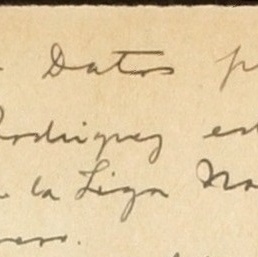 Datos p
Rodriguez est
la Liga Na